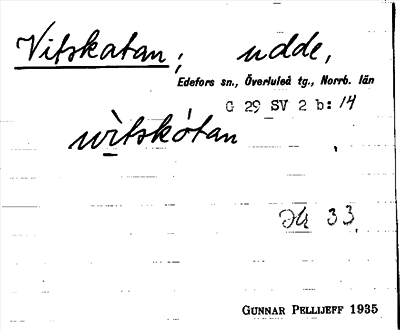 Vitskatan, udde,
Edefors sn., Överluleå tg., Norrb. län
G 29 SV 2 b: 14
wìtskòtan
33
GUNNAR PELLIJEFF 1935